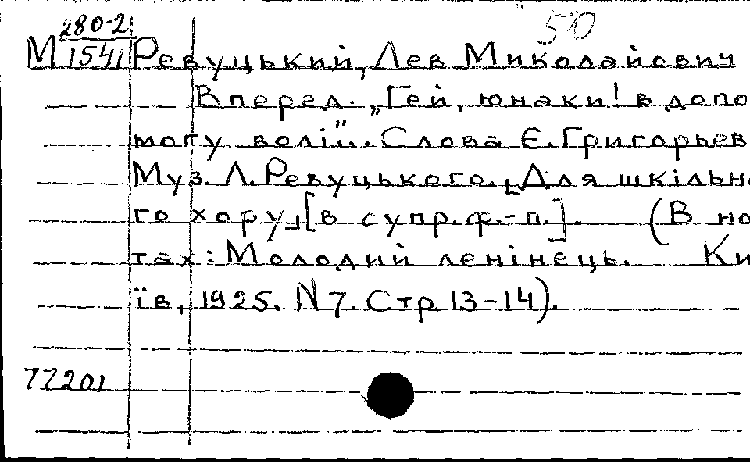 280-2 50
М 1541 Ревуцький, Лев Миколайович
Вперед. „Гей, юнаки! в допо
могу волій". Слова Є. Григорьев
Муз. Л. Ревуцького. [Для шкільно
го хору] [в супр. ф.-п.]. (В но
тах: Молодий ленінець. Ки
їв, 1925. N 7. Стр 13-14).
77201